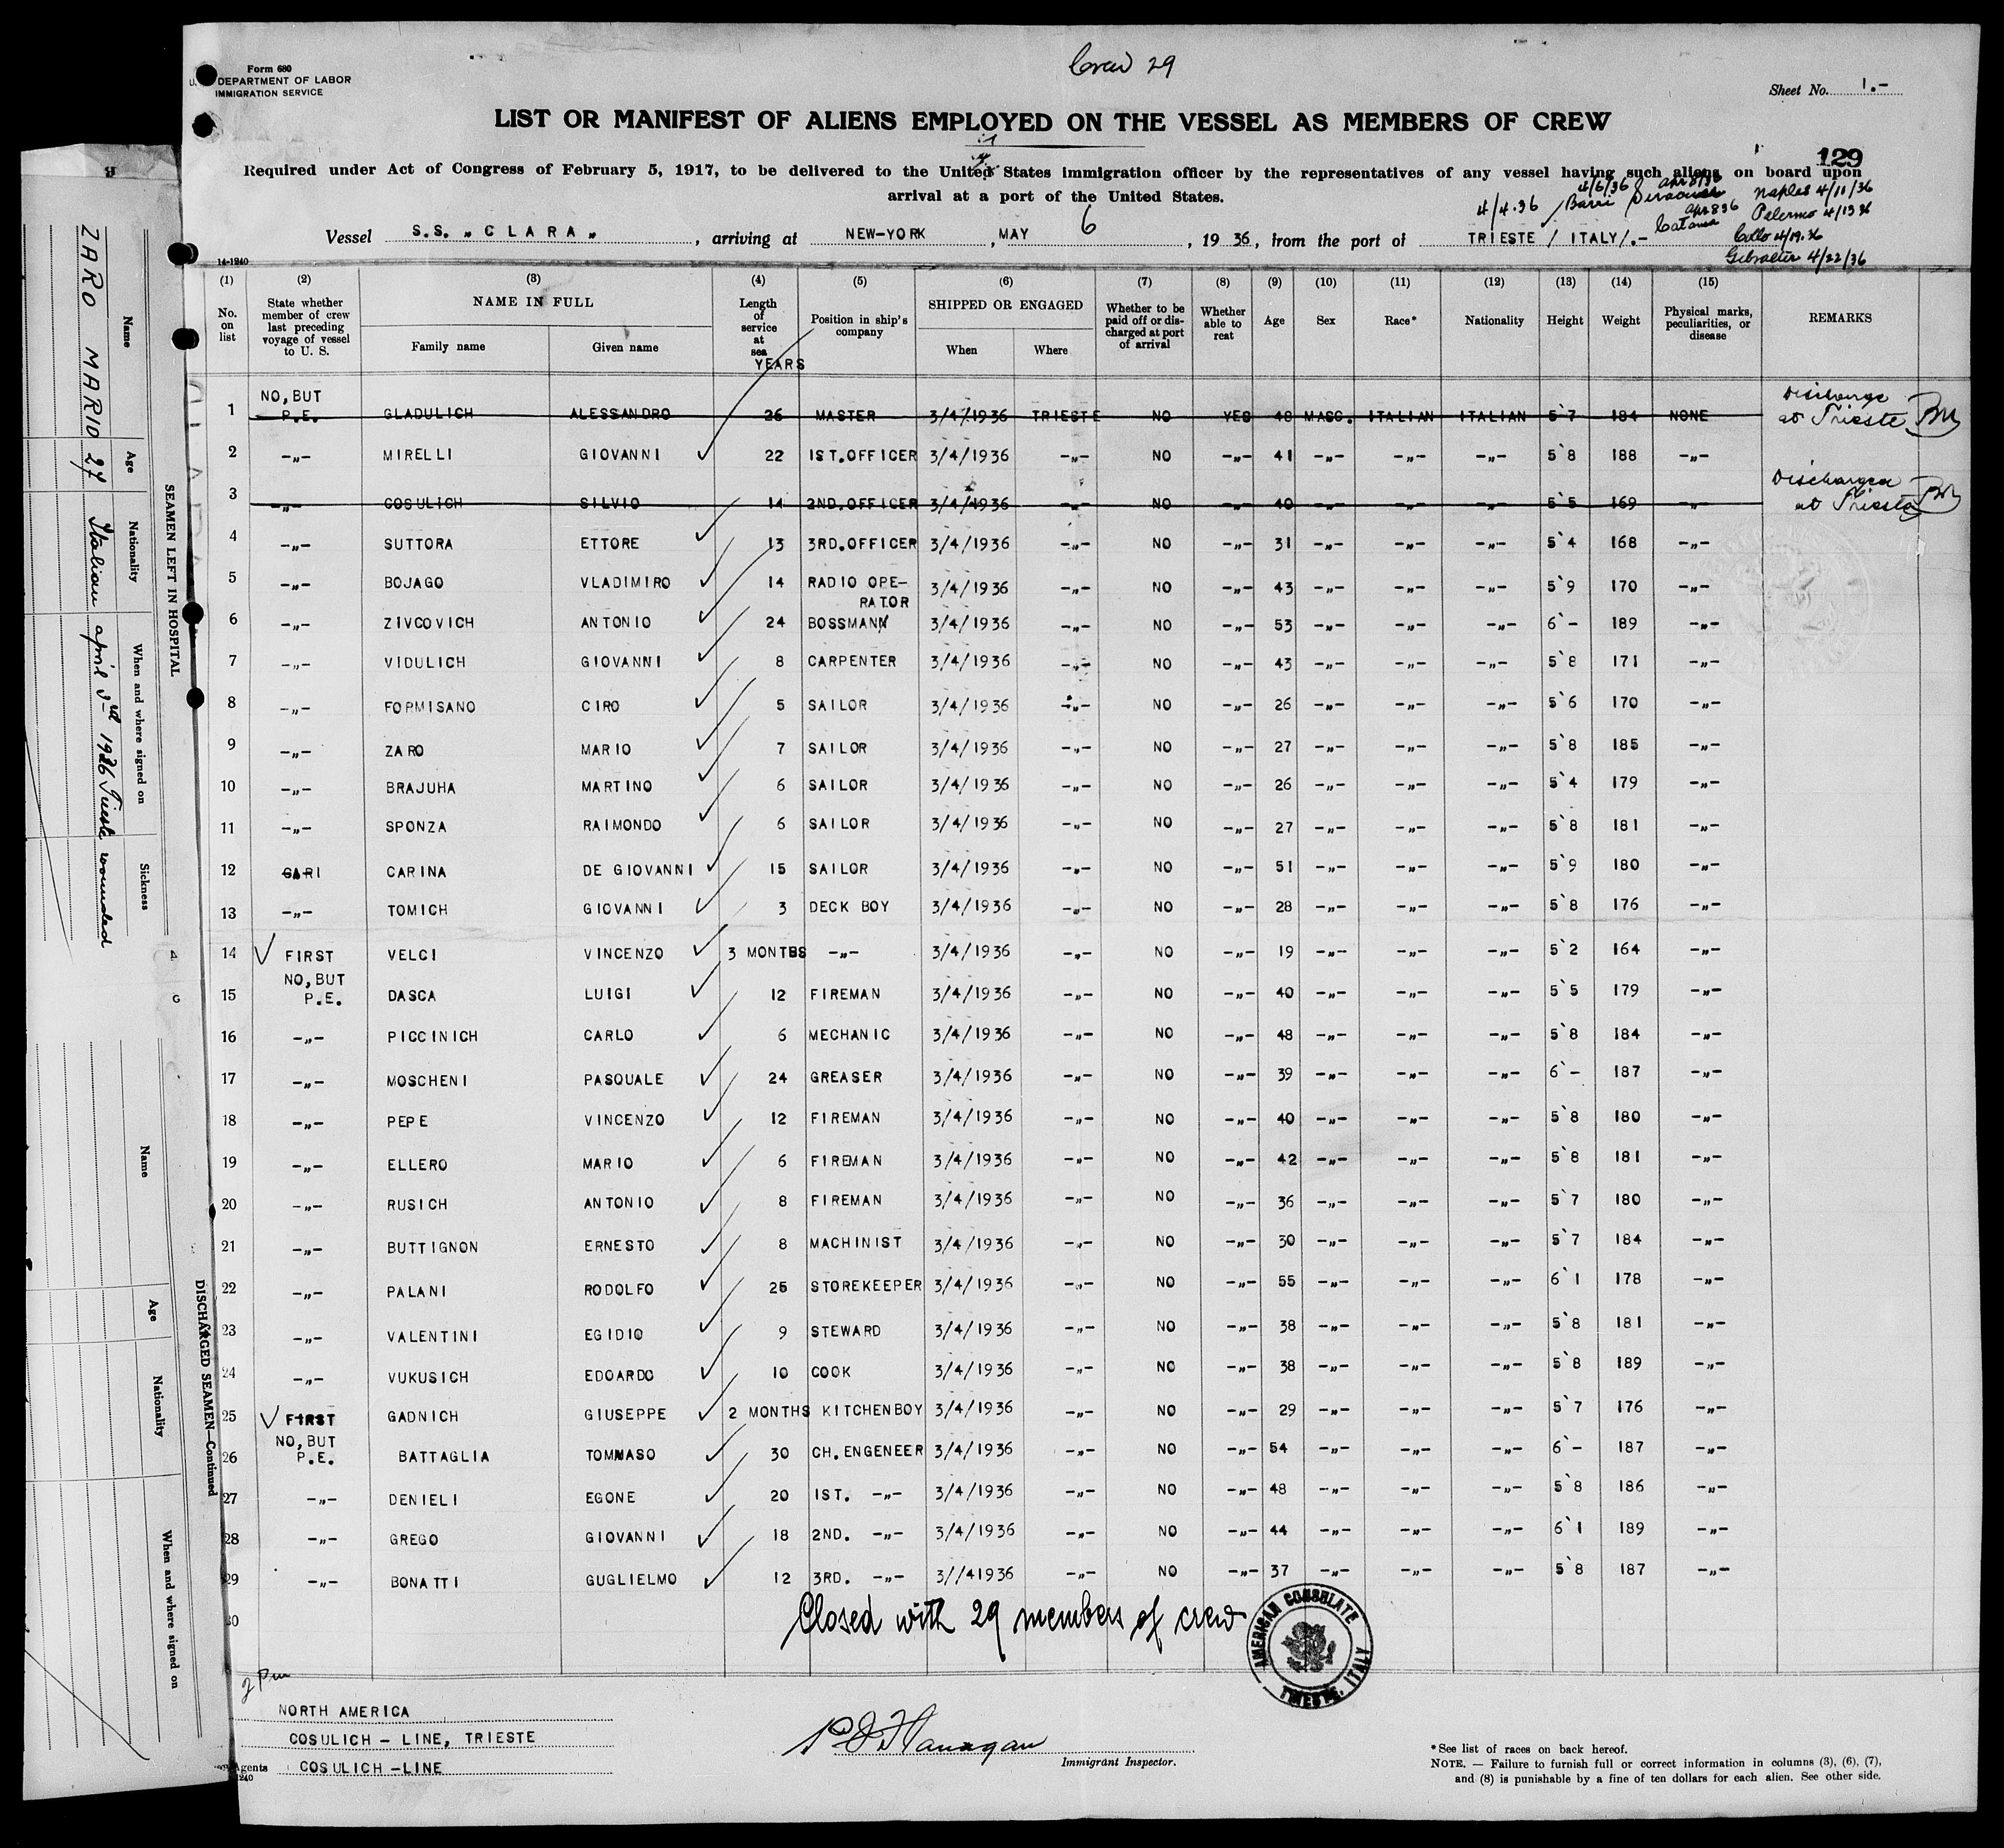 Form 680
DEPARTMENT OF LABOR
IMMIGRATION SERVICE
Crew 29
Sheet No. 1.-
LIST OR MANIFEST OF ALIENS EMPLOYED ON THE VESSEL AS MEMBERS OF CREW
129
Required under Act of Congress of February 5, 1917, to be delivered to the United States immigration officer by the representatives of any vessel having such aliens on board upon
arrival at a port of the United States.
4/4.36 / 4/6/36 Barri Siracusa Apr 8/36 Catania Apr 8 36 Naples 4/11/36
Palermo 4/13 36
Collo 4/19.36
Gibralter 4/22/36
Vessel S.S. „CLARA„, arriving at NEW-YORK, MAY 6, 1936, from the port of TRIESTE / ITALY/.-
14-1240
(1) (2) (3) (4) (5) (6) (7) (8) (9) (10) (11) (12) (13) (14) (15)
No. on list
State whether member of crew last preceding voyage of vessel to U. S.
NAME IN FULL
Family name Given name
Length of service at sea YEARS
Position in ship's company
SHIPPED OR ENGAGED
When Where
Whether to be paid off or discharged at port of arrival
Whether able to reat
Age Sex Race* Nationality Height Weight
Physical marks, peculiarities, or disease
REMARKS
1 NO, BUT P.E. GLADULICH ALESSANDRO 26 MASTER 3/4/1936 TRIESTE NO YES 48 MASC. ITALIAN ITALIAN 5`7 184 NONE Discharge at Trieste
2 -„- MIRELLI GIOVANNI 22 1ST.OFFICER 3/4/1936 -„- NO -„- 41 -„- -„- -„- 5`8 188 -„-
3 -„- COSULICH SILVIO 14 2ND.OFFICER 3/4/1936 -„- NO -„- 40 -„- -„- -„- 5`5 169 -„- Discharged at Trieste
4 -„- SUTTORA ETTORE 13 3RD.OFFICER 3/4/1936 -„- NO -„- 31 -„- -„- -„- 5`4 168 -„-
5 -„- BOJAGO VLADIMIRO 14 RADIO OPE-RATOR 3/4/1936 -„- NO -„- 43 -„- -„- -„- 5`9 170 -„-
6 -„- ZIVCOVICH ANTONIO 24 BOSSMANN 3/4/1936 -„- NO -„- 53 -„- -„- -„- 6`- 189 -„-
7 -„- VIDULICH GIOVANNI 8 CARPENTER 3/4/1936 -„- NO -„- 43 -„- -„- -„- 5`8 171 -„-
8 -„- FORMISANO CIRO 5 SAILOR 3/4/1936 -„- NO -„- 26 -„- -„- -„- 5`6 170 -„-
9 -„- ZARO MARIO 7 SAILOR 3/4/1936 -„- NO -„- 27 -„- -„- -„- 5`8 185 -„-
10 -„- BRAJUHA MARTINO 6 SAILOR 3/4/1936 -„- NO -„- 26 -„- -„- -„- 5`4 179 -„-
11 -„- SPONZA RAIMONDO 6 SAILOR 3/4/1936 -„- NO -„- 27 -„- -„- -„- 5`8 181 -„-
12 CARI CARINA DE GIOVANNI 15 SAILOR 3/4/1936 -„- NO -„- 51 -„- -„- -„- 5`9 180 -„-
13 -„- TOMICH GIOVANNI 3 DECK BOY 3/4/1936 -„- NO -„- 28 -„- -„- -„- 5`8 176 -„-
14 FIRST VELCI VINCENZO 3 MONTHS -„- 3/4/1936 -„- NO -„- 19 -„- -„- -„- 5`2 164 -„-
15 NO, BUT P.E. DASCA LUIGI 12 FIREMAN 3/4/1936 -„- NO -„- 40 -„- -„- -„- 5`5 179 -„-
16 -„- PICCINICH CARLO 6 MECHANIC 3/4/1936 -„- NO -„- 48 -„- -„- -„- 5`8 184 -„-
17 -„- MOSCHENI PASQUALE 24 GREASER 3/4/1936 -„- NO -„- 39 -„- -„- -„- 6`- 187 -„-
18 -„- PEPE VINCENZO 12 FIREMAN 3/4/1936 -„- NO -„- 40 -„- -„- -„- 5`8 180 -„-
19 -„- ELLERO MARIO 6 FIREMAN 3/4/1936 -„- NO -„- 42 -„- -„- -„- 5`8 181 -„-
20 -„- RUSICH ANTONIO 8 FIREMAN 3/4/1936 -„- NO -„- 36 -„- -„- -„- 5`7 180 -„-
21 -„- BUTTIGNON ERNESTO 8 MACHINIST 3/4/1936 -„- NO -„- 30 -„- -„- -„- 5`7 184 -„-
22 -„- PALANI RODOLFO 25 STOREKEEPER 3/4/1936 -„- NO -„- 55 -„- -„- -„- 6`1 178 -„-
23 -„- VALENTINI EGIDIO 9 STEWARD 3/4/1936 -„- NO -„- 38 -„- -„- -„- 5`8 181 -„-
24 -„- VUKUSICH EDOARDO 10 COOK 3/4/1936 -„- NO -„- 38 -„- -„- -„- 5`8 189 -„-
25 FIRST GADNICH GIUSEPPE 2 MONTHS KITCHENBOY 3/4/1936 -„- NO -„- 29 -„- -„- -„- 5`7 176 -„-
26 NO, BUT P.E. BATTAGLIA TOMMASO 30 CH.ENGENEER 3/4/1936 -„- NO -„- 54 -„- -„- -„- 6`- 187 -„-
27 -„- DENIELI EGONE 20 1ST. -„- 3/4/1936 -„- NO -„- 48 -„- -„- -„- 5`8 186 -„-
28 -„- GREGO GIOVANNI 18 2ND. -„- 3/4/1936 -„- NO -„- 44 -„- -„- -„- 6`1 189 -„-
29 -„- BONATTI GUGLIELMO 12 3RD. -„- 3//41936 -„- NO -„- 37 -„- -„- -„- 5`8 187 -„-
30
Closed with 29 members of crew
AMERICAN CONSULATE
TRIESTE, ITALY
2 Pm
NORTH AMERICA
COSULICH - LINE, TRIESTE
Agents COSULICH -LINE
P J Flanagan
Immigrant Inspector.
*See list of races on back hereof.
NOTE. — Failure to furnish full or correct information in columns (3), (6), (7),
and (8) is punishable by a fine of ten dollars for each alien. See other side.
SEAMEN LEFT IN HOSPITAL
Name Age Nationality When and where signed on Sickness
ZARO MARIO 27 Italian April 3rd 1936 Trieste wounded
DISCHARGED SEAMEN—Continued
Name Age Nationality When and where signed on